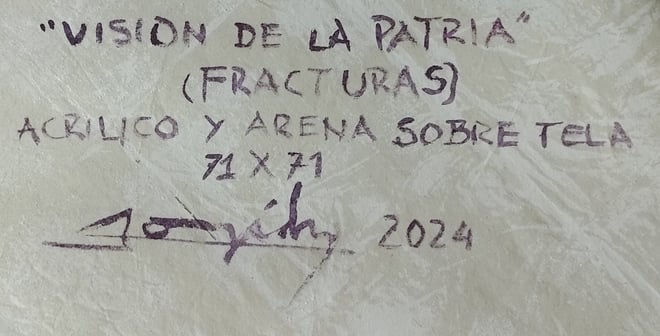 "VISION DE LA PATRIA"
(FRACTURAS)
ACRILICO Y ARENA SOBRE TELA
71 X 71
2024